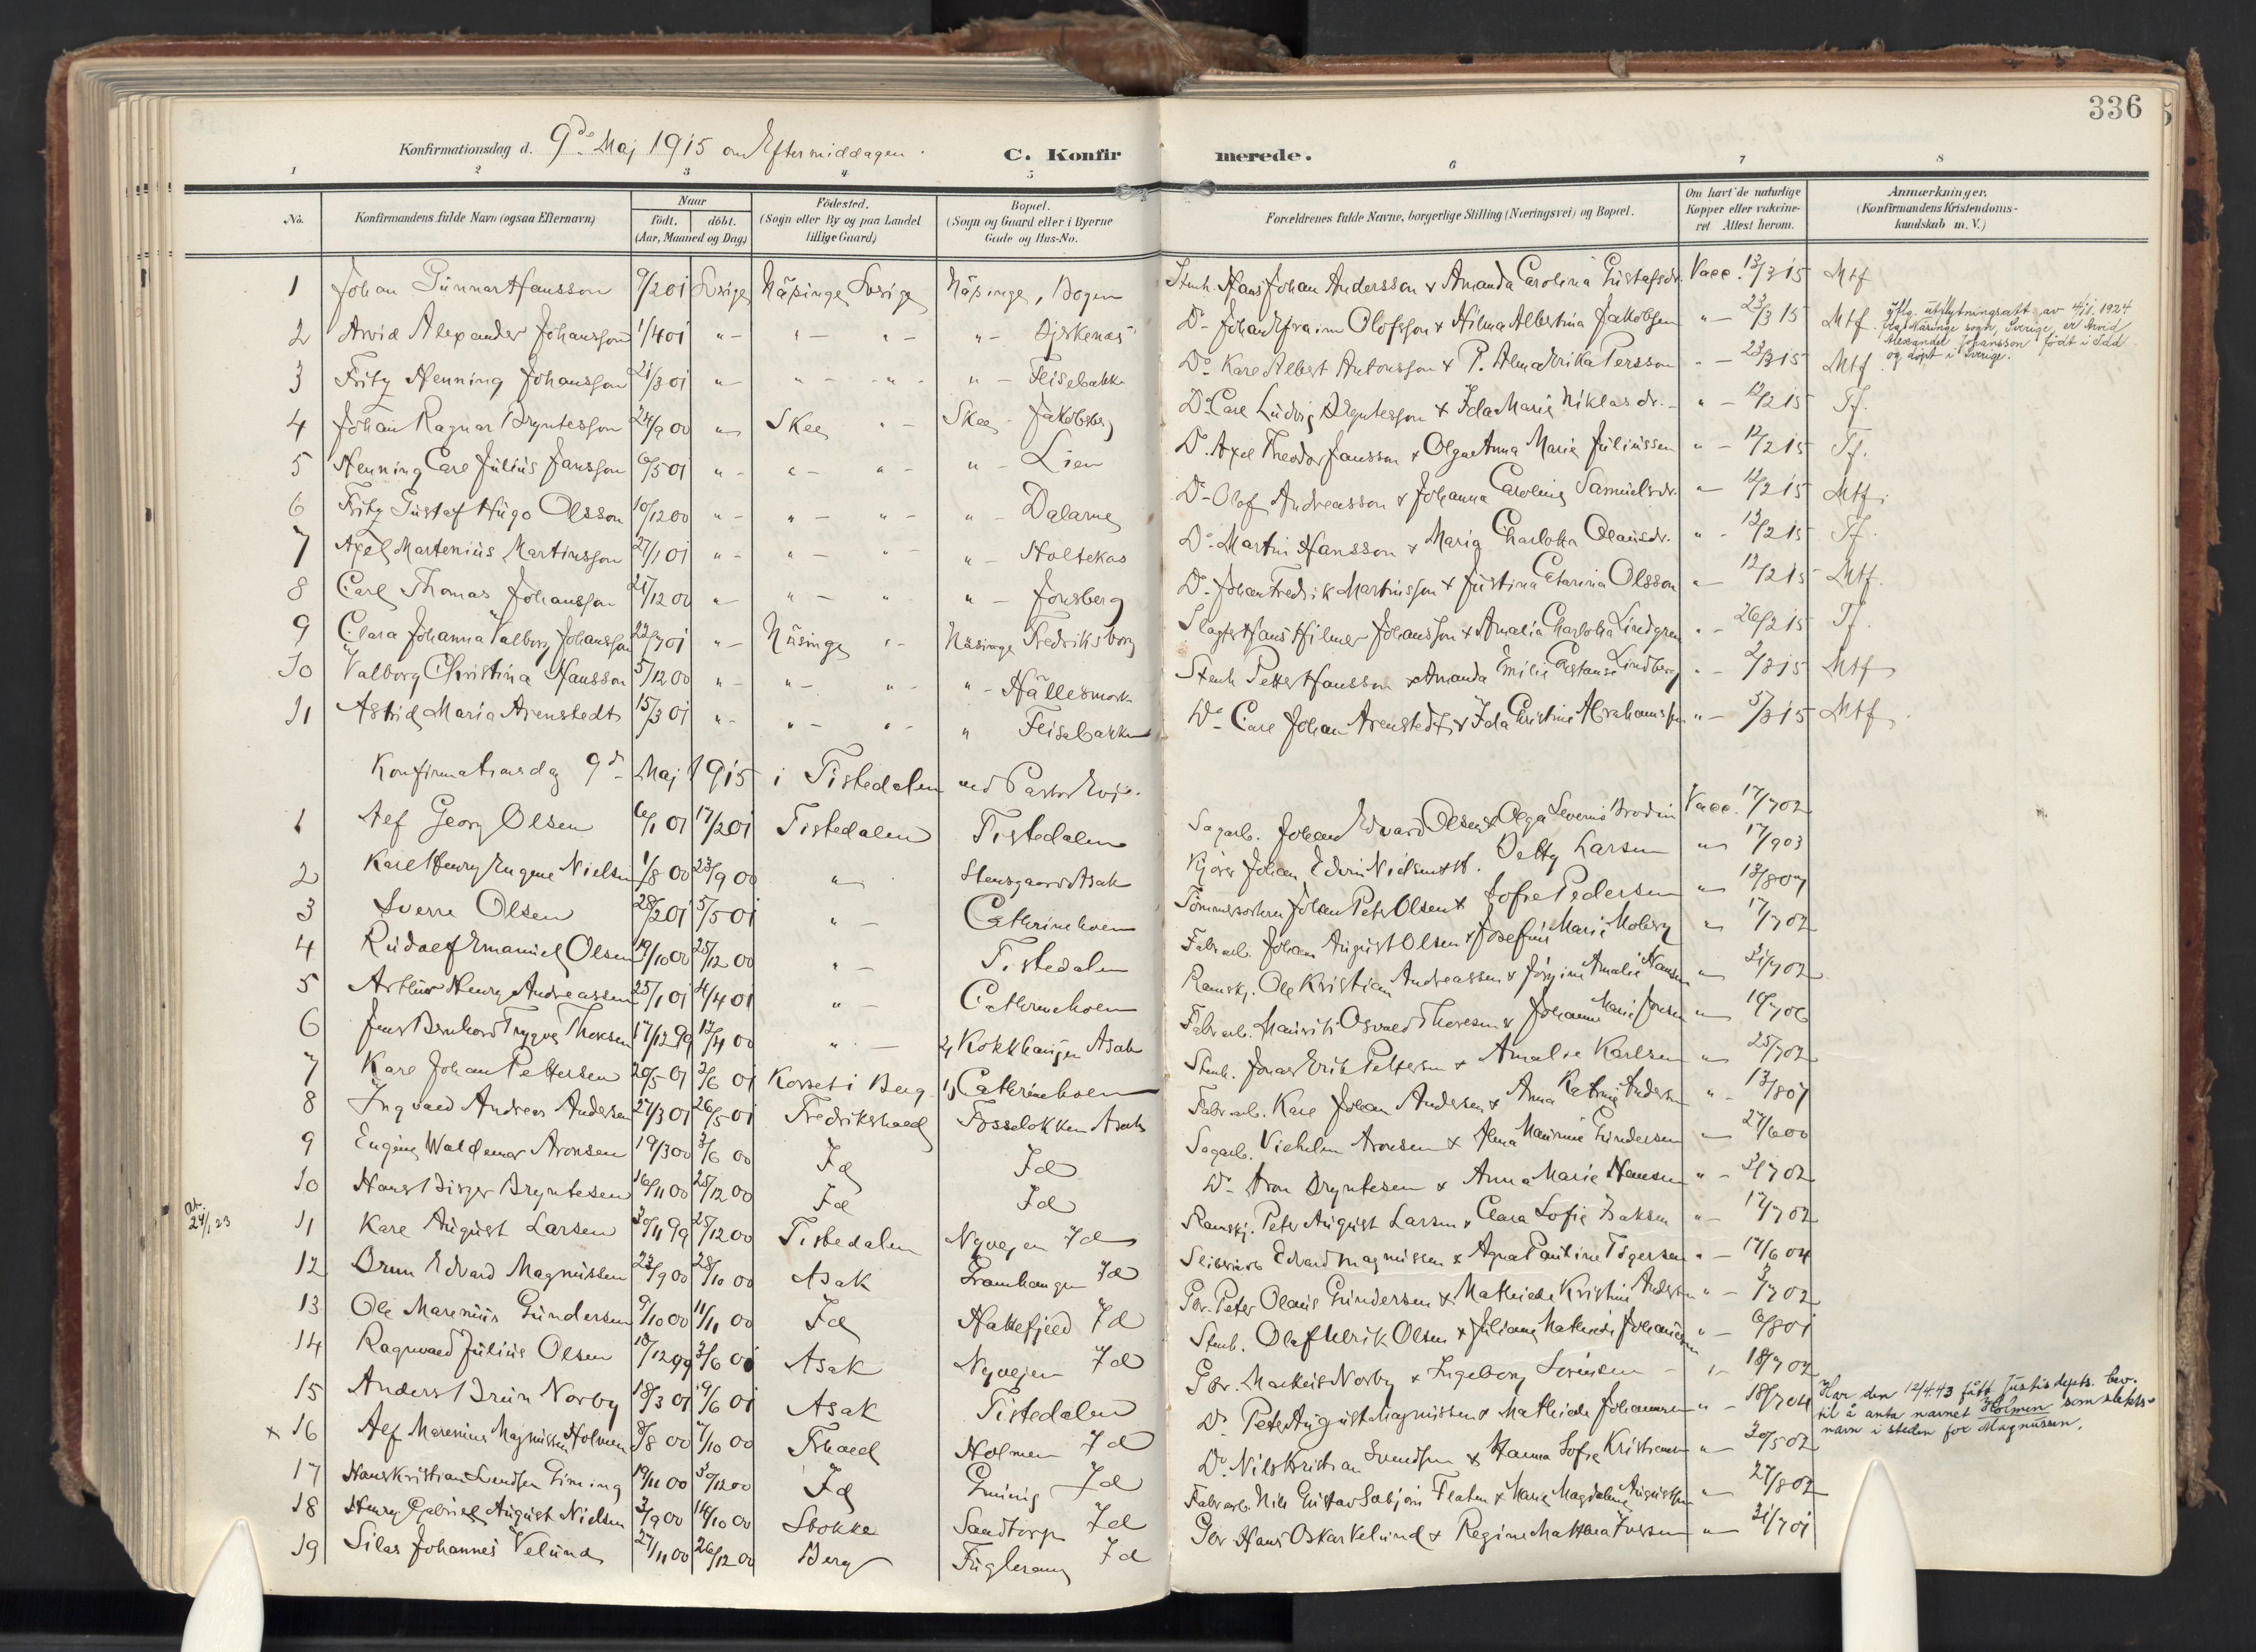 336
Konfirmationsdag d. 9de Maj 1915 om Eftermiddagen.
C. Konfirmerede.
1 2 3 4 5 6 7 8
No. Konfirmandens fulde Navn (ogsaa Efternavn) Naar født. døbt. (Aar, Maaned og Dag) Fødested. (Sogn eller By og paa Landet tillige Gaard) Bopæl. (Sogn og Gaard eller i Byerne Gade og Hus-No. Forældrenes fulde Navne, borgerlige Stilling (Næringsvei) og Bopæl. Om havt de naturlige Kopper eller vakcineret Attest herom. Anmærkninger. (Konfirmandens Kristendomskundskab m. V.)
1 Johan Gunnar Hansson 9/2 01 Sverige Näsinge Sverige Näsinge, Bogen Stenh. Hans Johan Andersson & Amanda Carolina Gustafsdr. Vacc. 13/3 15 Mtf
2 Arvid Alexander Johansson 1/4 01 " - " - " - " - Björkenäs Do- Johan Efraim Olofsson & Hilma Albertina Jakobsen " - 23/3 15 Mtf. Iflg. utflytningsatt. av 4/1. 1924 fra Näsinge sogn, Sverige, er Arvid Alexander Johansson født i Idd og døpt i Sverige.
3 Fritz Henning Johansson 21/3 01 " - " - " - " - Feisebakke Do- Karl Albert Antonsson & P. Alma Erika Persson " - 23/3 15 Mtf
4 Johan Ragnar Bryntesson 24/9 00 " Skee " - Skee - Jakobsberg Do- Carl Ludvig Bryntesson & Ida Maria Niklasdr. - " - 12/2 15 Tf.
5 Henning Carl Julius Jansson 6/5 01 " - " - " - " - Lien Do. Axel Theodor Jansson & Olga Anna Maria Juliussen " - 12/2 15 Tf.
6 Fritz Gustaf Hugo Olsson 10/12 00 " - " - " - " - Dalarne Do- Olof Andreasson & Johanna Carolina Samuelsdr. " - 12/2 15 Mtf.
7 Axel Martenius Martinsson 27/1 01 " - " - " - " - Holtekas Do- Martin Hansson & Maria Charlotta Olausdr. " - 12/2 15 Tf.
8 Carl Thomas Johansson 21/12 00 " - " - " " - Jonsberg Do- Johan Fredrik Martinsson & Justina Catarina Olsson " - 12/2 15 Mtf.
9 Clara Johanna Valborg Johansson 22/7 01 " - Näsinge " - Näsinge Fredriksborg Slagter Hans Hilmer Johansson & Amalia Charlotta Lindgren " - 26/2 15 Tf.
10 Valborg Christina Hansson 5/12 00 " - " - " - " - Hällesmork Stenh Petter Hansson & Amanda Emilie Constanse Lindberg " - 2/3 15 Mtf
11 Astrid Maria Arenstedt 15/3 01 " - " - " - " Feisebakken Do- Carl Johan Arenstedt & Ida Christine Abrahamsson " - 5/3 15 Mtf
Konfirmationsdag 9de Maj 1915 i Tistedalen ved Pastor Evje.
1 Alf Georg Olsen 6/1 01 17/2 01 Tistedalen Tistedalen Sagarb. Johan Edvard Olsen & Olga Severine Brodin Vacc. 17/7 02
2 Karl Henry Eugene Nielsen 1/8 00 23/9 00 " Stensgaard Asak Kjører Johan Edvin Nielsen & H. Betty Larsen " 17/9 03
3 Sverre Olsen 28/2 01 5/5 01 " - Cathrineholm Tømmersorterer Johan Peter Olsen & Sofie Pedersen " 13/8 07
4 Rudolf Emanuel Olsen 19/10 00 25/12 00 " - Tistedalen Fabr arb. Johan August Olsen & Josefine Marie Moberg " 17/7 02
5 Arthur Henry Andreassen 25/1 01 4/4 01 " - Cathrineholm Ramskj. Ole Kristian Andreassen & Jørgine Amalie Hansen " 31/7 02
6 Jens Bernhard Trygve Thoresen 17/12 99 17/4 00 " - 2, Kokkhaugen Asak Fabr arb. Mauritz Osvald Thoresen & Johanne Marie Jensen " 10/7 06
7 Karl Johan Pettersen 20/5 01 2/6 01 Korset i Berg 1) Cathrineholm Stenh. Jonas Erik Pettersen & Amalie Karlsen " 25/7 02
8 Ingvald Andreas Andersen 27/3 01 26/5 01 Fredrikshald Fosseløkken Asak Fabr arb. Karl Johan Andersen & Anna Katrine Andersen " - 13/8 07
9 Eugene Waldemar Aronsen 19/3 00 3/6 00 Id Id Sagarb. Vilhelm Aronsen & Alma Maurine Gundersen " 27/6 00
10 Hans Birger Bryntesen 16/11 00 25/12 00 Id Id Do- Aron Bryntesen & Anna Marie Hansen " - 3/7 02
at. 24/1 23
11 Karl August Larsen 30/11 99 25/12 00 Tistedalen Nyvejen Id Ramskj. Peter August Larsen & Clara Sofie Isaksen " - 17/7 02
12 Brun Edvard Magnussen 22/9 00 28/10 00 Asak Gramhaugen Id Sliberiarb Edvard Magnussen & Agna Pauline Tøgersen " - 17/6 04
13 Ole Marenius Gundersen 9/10 00 11/11 00 Id Hakkefjeld Id Gbr. Peter Olaus Gundersen & Mathilde Kristine Andersen " - 3/7 02
14 Ragnvald Julius Olsen 18/12 99 3/6 00 Asak Nyvejen Id Stenh. Olaf Ulrik Olsen & Juliane Mathilde Johansen " - 6/8 01
15 Anders Brun Norby 18/3 01 9/6 01 Asak Tistedalen Gbr. Markus Norby & Ingeborg Sørensen - " 18/7 02
x 16 Alf Marenius Magnussen Holmen 8/8 00 7/10 00 Fhald Holmen Id Do. Peter August Magnussen & Mathilde Johannesen " - 18/7 04 Har den 12/4.43 fått Justisdepts. bev. til å anta navnet Holmen som slektsnavn i steden for Magnussen.
17 Hans Kristian Svendsen Giming 19/11 00 30/12 00 Id Giming Id Do. Nils Kristian Svendsen & Hanna Sofie Kristiansen " 30/5 02
18 Henry Gabriel August Nielsen 3/9 00 14/10 00 Stokke Sandtorp Id Fabr arb. Nils Gustav Torbjørn Flaten & Marie Magdalene Augustsen " 27/8 02
19 Silas Johannes Velund 27/11 00 26/12 00 Berg Fuglesang Id Gbr Hans Oskar Velund & Regine Mathea Iversen " 31/7 01